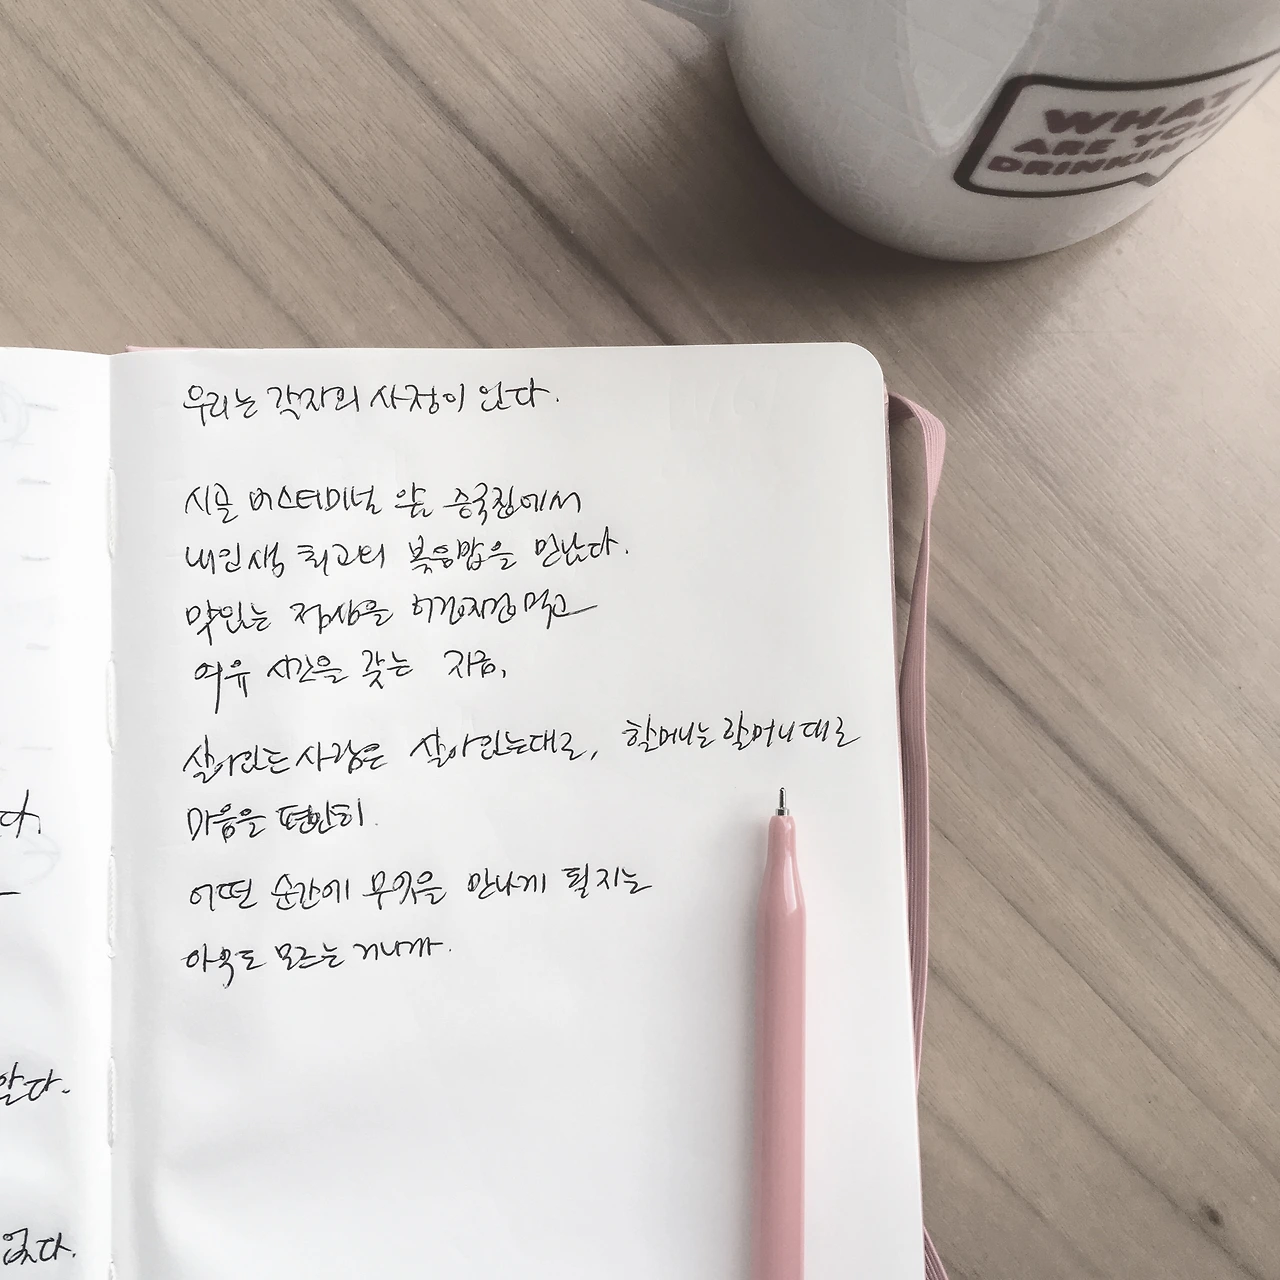 WHAT
ARE YOU
DRINKIN
우리는 각자의 사정이 있다.
시골 버스터미널 앞 중국집에서
내 인생 최고의 볶음밥을 만났다.
맛있는 점심을 허겁지겁 먹고
여유 시간을 갖는 지금,
살아있는 사람은 살아있는대로, 할머니는 할머니대로
마음을 편안히.
어떤 순간에 무엇을 만나게 될지는
아무도 모르는 거니까.
다.
알다.
없다.